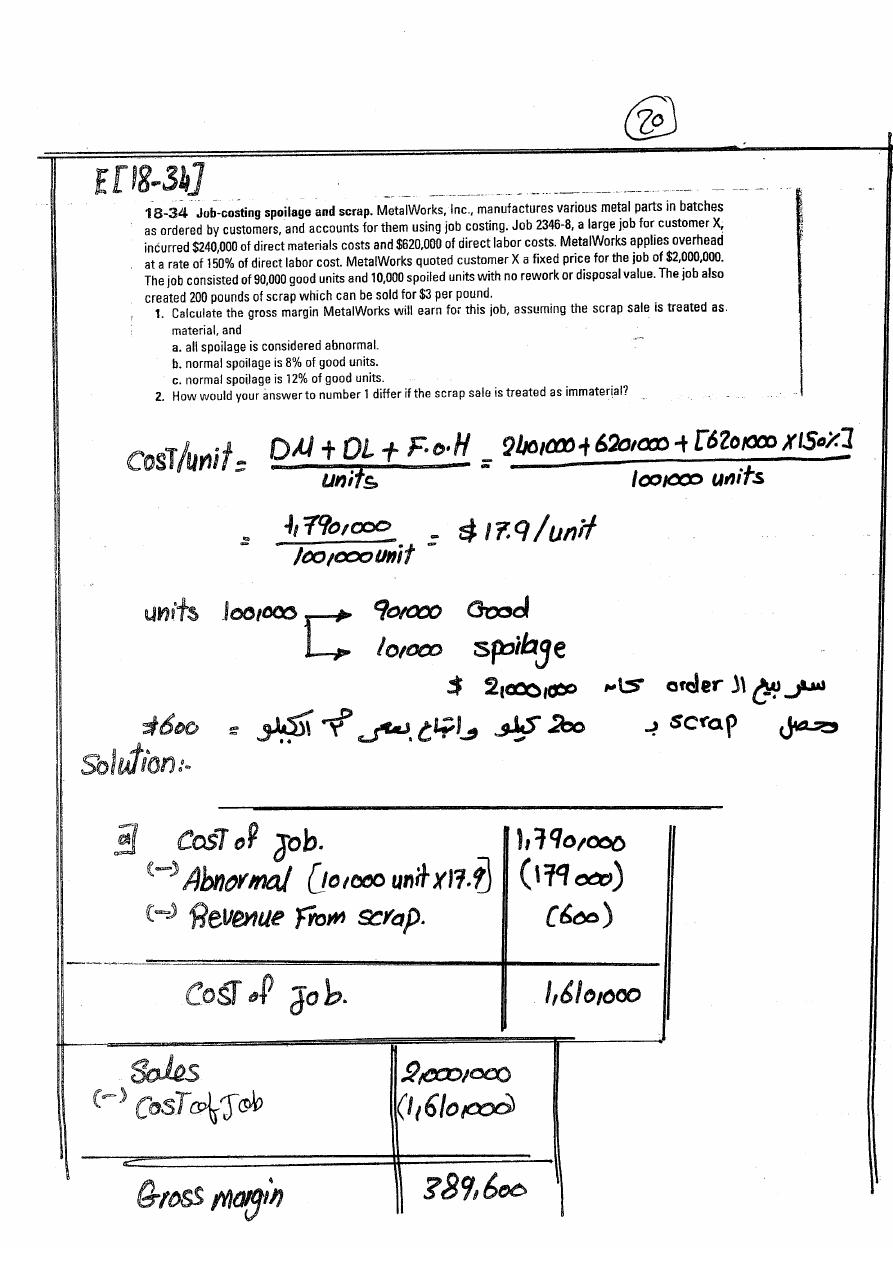 20
E[18-34]
18-34 Job-costing spoilage and scrap. MetalWorks, Inc., manufactures various metal parts in batches
as ordered by customers, and accounts for them using job costing. Job 2346-8, a large job for customer X,
incurred $240,000 of direct materials costs and $620,000 of direct labor costs. MetalWorks applies overhead
at a rate of 150% of direct labor cost. MetalWorks quoted customer X a fixed price for the job of $2,000,000.
The job consisted of 90,000 good units and 10,000 spoiled units with no rework or disposal value. The job also
created 200 pounds of scrap which can be sold for $3 per pound.
1. Calculate the gross margin MetalWorks will earn for this job, assuming the scrap sale is treated as
material, and
a. all spoilage is considered abnormal.
b. normal spoilage is 8% of good units.
c. normal spoilage is 12% of good units.
2. How would your answer to number 1 differ if the scrap sale is treated as immaterial?
COST/unit = DM + DL + F.O.H / units = 240,000 + 620,000 + [620,000 X 150%] / 100,000 units
= 1,790,000 / 100,000 unit = $ 17.9/unit
units 100,000 → 90,000 Good
→ 10,000 spoilage
سعر بيع الـ order كان 2,000,000 $
حصل scrap بـ 200 كيلو واتباع بسعر 3$ الكيلو = $600
Solution:-
a] COST of Job. 1,790,000
(-) Abnormal [10,000 unit X 17.9] (179 000)
(-) Revenue From scrap. (600)
COST of Job. 1,610,000
Sales 2,000,000
(-) COST of Job (1,610,000)
Gross margin 389,600